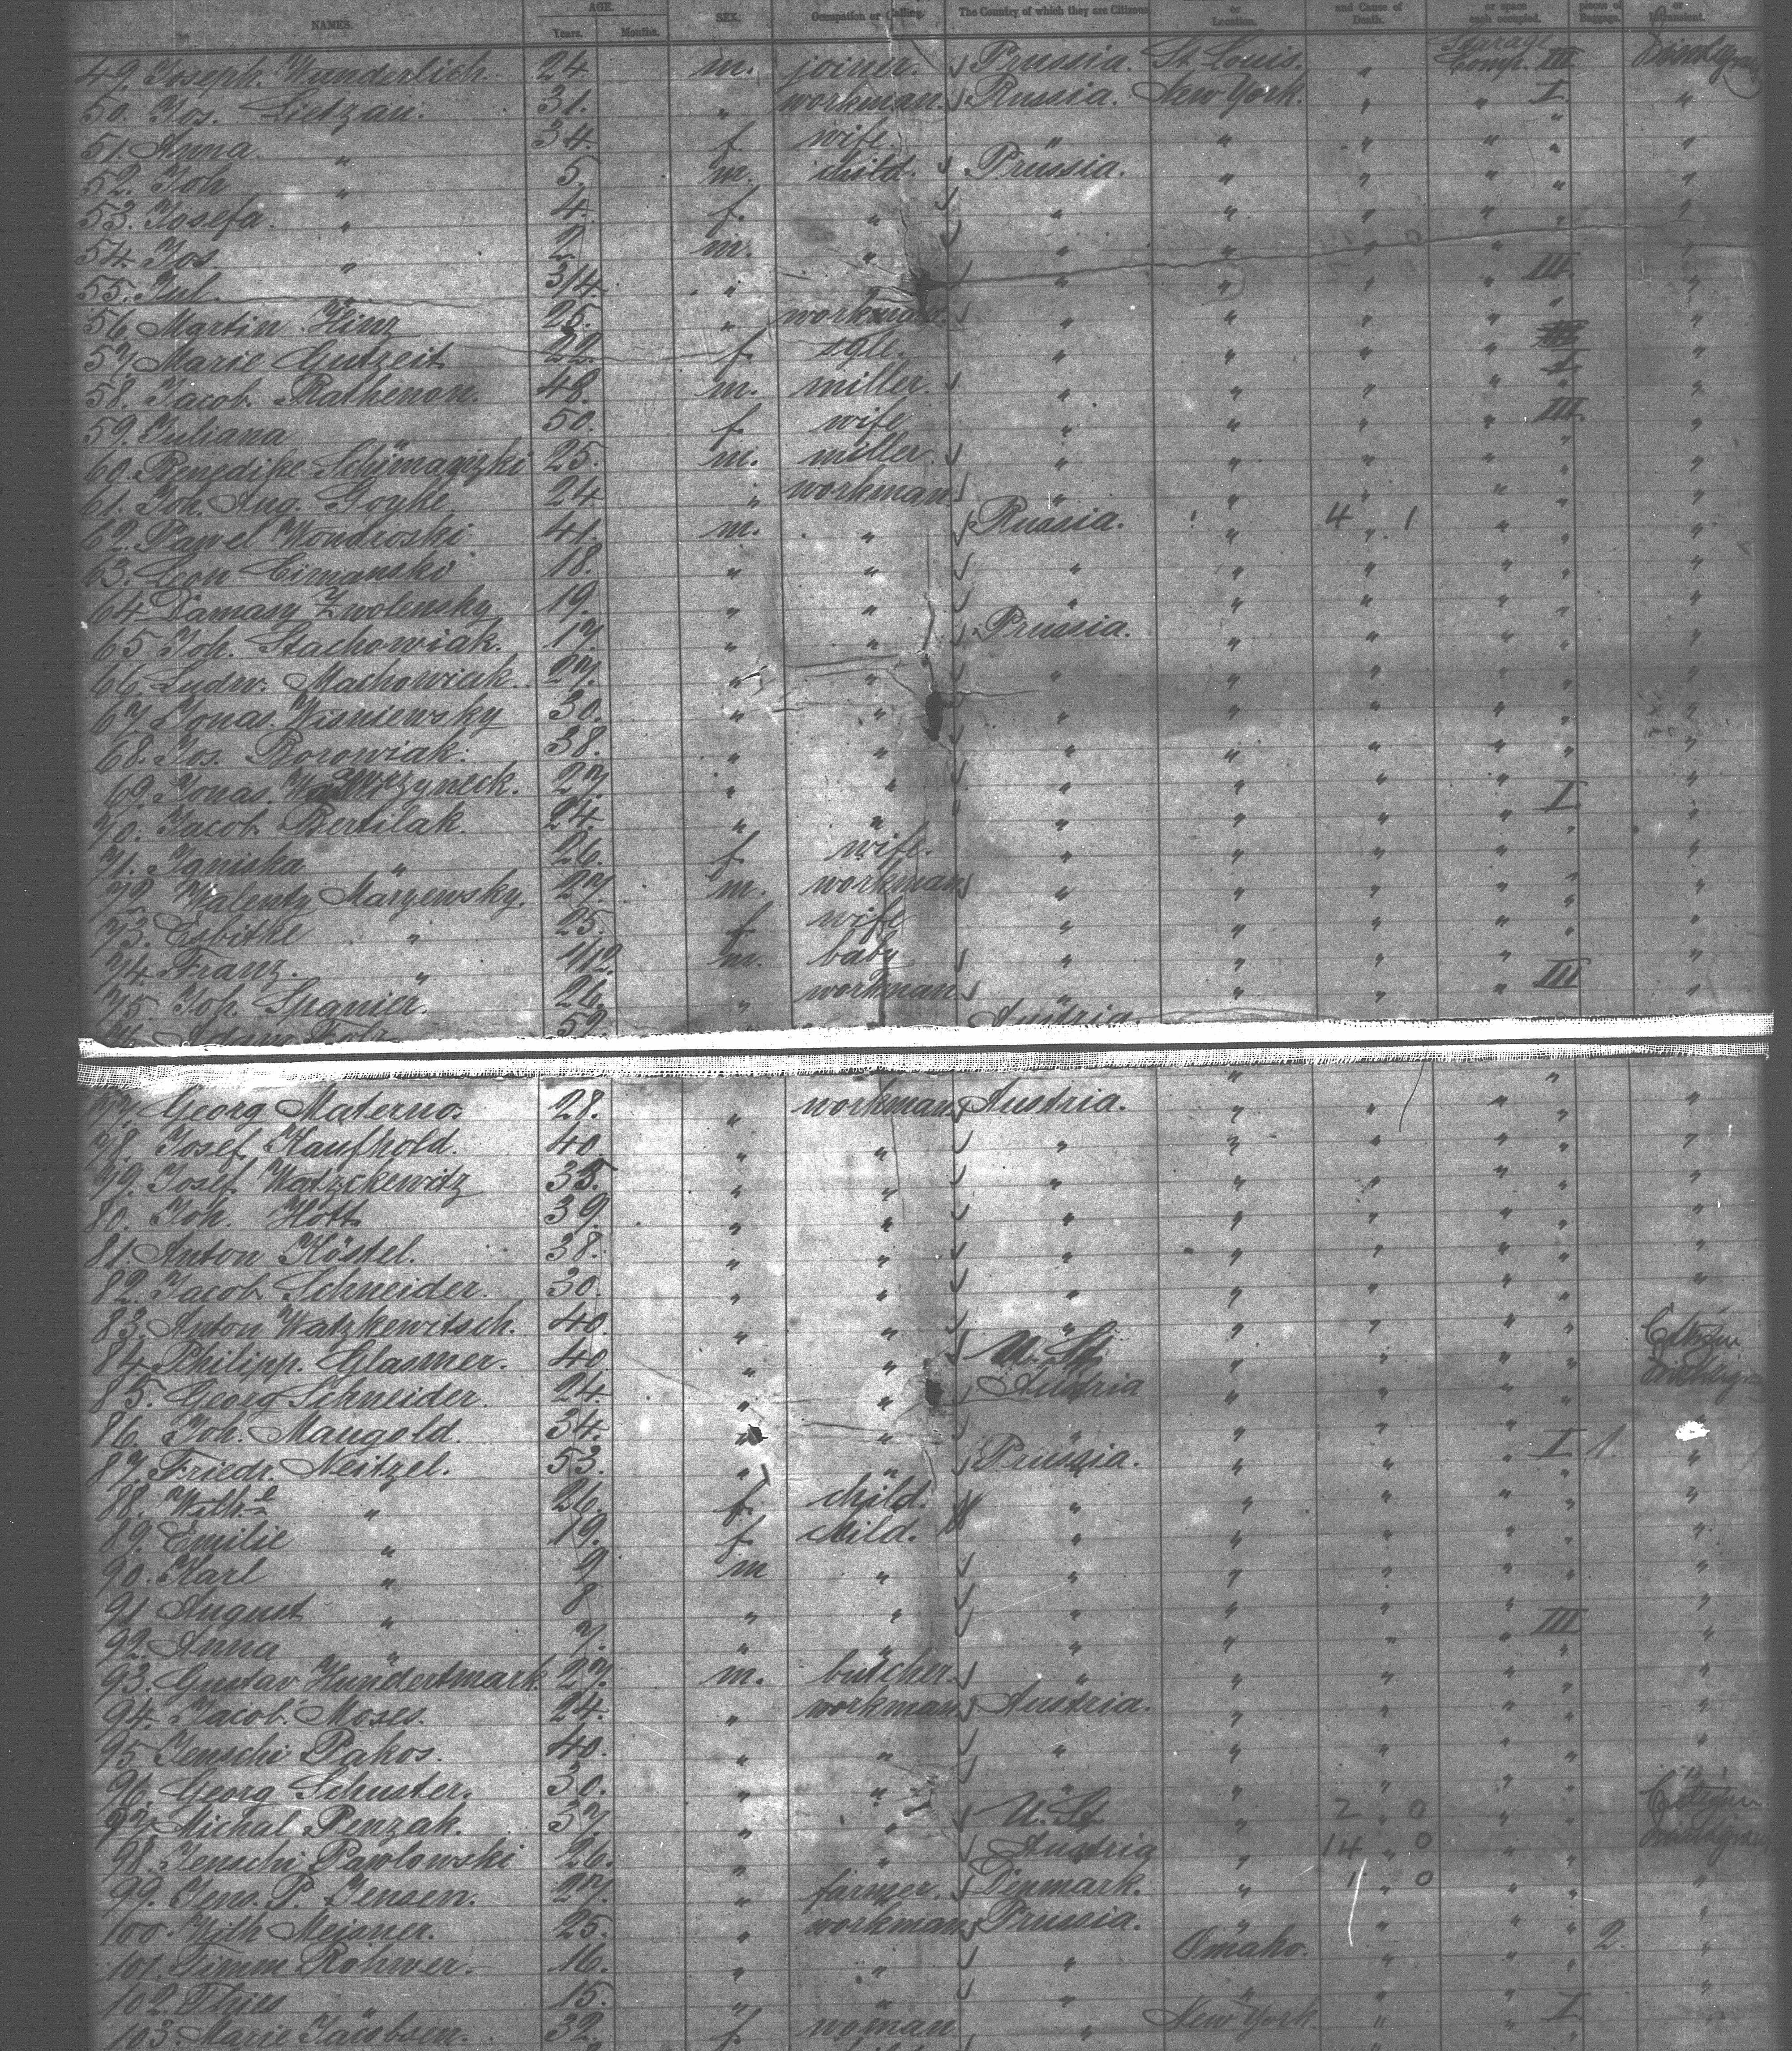 NAMES. AGE. Years. Months. SEX. Occupation or Calling. The Country of which they are Citizens. or Location. and Cause of Death. or space each occupied. pieces of Baggage. or Transient.
49. Joseph. Wunderlich. 24. m. joiner. Prussia. St. Louis. " Steerage Comp. III
50. Jos. Lietzau. 31. " workman. Russia. New York. " " I "
51. Anna. " 34. f. wife. " " " " " "
52. Joh " 5. m. child. Prussia. " " " " "
53. Josefa. " 4. f. " " " " " " "
54. Jos " 2 m. " " " " " "
55. Jul. 3/4. " " " " " " III. "
56. Martin Hinz 25. " workman. " " " " " "
57. Marie Gutzeit 22. f. sgle. " " " " "
58. Jacob. Rathenon. 48. m. miller. " " " " I "
59. Juliana 50. f. wife " " " " III. "
60. Benedike Schimanzki 25. m. miller. " " " " " "
61. Joh. Aug. Goyke 24. " workman. " " " " " "
62. Pawel Wondroski 41. m. " Russia. " 4 " 1 " " "
63. Leon Cimanski 18. " " " " " " " "
64. Damasy Zwolensky 19. " " " " " " " "
65. Joh. Stachowiak. 17. " " Prussia. " " " " "
66. Ludw. Machowiak. 27. " " " " " " " "
67. Jonas. Wisniewsky 30. " " " " " " " "
68. Jos. Borowiak. 38. " " " " " " " "
69. Jonas. 27. " " " " " I "
70. Jacob. Bertilak. 24. " " " " " " " "
71. Igniska " 26. f. wife. " " " " " "
72. Walenty Maryewsky. 27. m. workman " " " " " "
73. Esbitke " 25. f wife " " " " " "
74. Franz. " 4/12. m. baby " " " " " "
75. Joh. Spanier. 26. " workman " " " " III "
76. Adam 52. " Austria.
77. Georg Materno. 28. " workman Austria. " " " " "
78. Josef. Kaufhold. 40. " " " " " " " "
79. Josef. Watzckewitz 35. " " " " " " " "
80. Joh. Hött 39. " " " " " " " "
81. Anton Köstel. 38. " " " " " " " "
82. Jacob. Schneider. 30. " " " " " " " "
83. Anton Watzkewitsch. 40. " " " " " " "
84. Philipp. Glasner. 40. " " U. St. " " " " Citizen
85. Georg Schneider. 24. " " Austria " " " "
86. Joh. Mangold. 34. " " " " " " I 1.
87. Friedr. Neitzel. 53. " " Prussia. " " " " "
88. Wilh.e " 26. f. child. " " " " " "
89. Emilie " 19. f child. " " " " " "
90. Karl " 9 m " " " " " " "
91. August " 8 " " " " " " "
92. Anna " 7. " " " " " " III "
93. Gustav Hundertmark. 27. m. butcher. " " " " " "
94. Jacob. Moses. 24. " workman Austria. " " " " "
95. Jenschi Pakos. 40. " " " " " " " "
96. Georg Schuster. 30. " " " " " " " "
97. Michal Penzak. 37 " " U. St " 2 " 0 " " Citizen
98. Jenschi Pawlowski 26. " " Austria " 14 " 0 " "
99. Jens. P. Jensen. 27. " farmer. Denmark. " 1 " 0 " " "
100. Wilh Meisner. 25. " workman Prussia. " " " " "
101. Timm Rohwer. 16. " " " Omaho. " " " 2. "
102. Thies " 15. " " " " " " " "
103. Marie Jacobsen. 32. f. woman " New York. " " I "